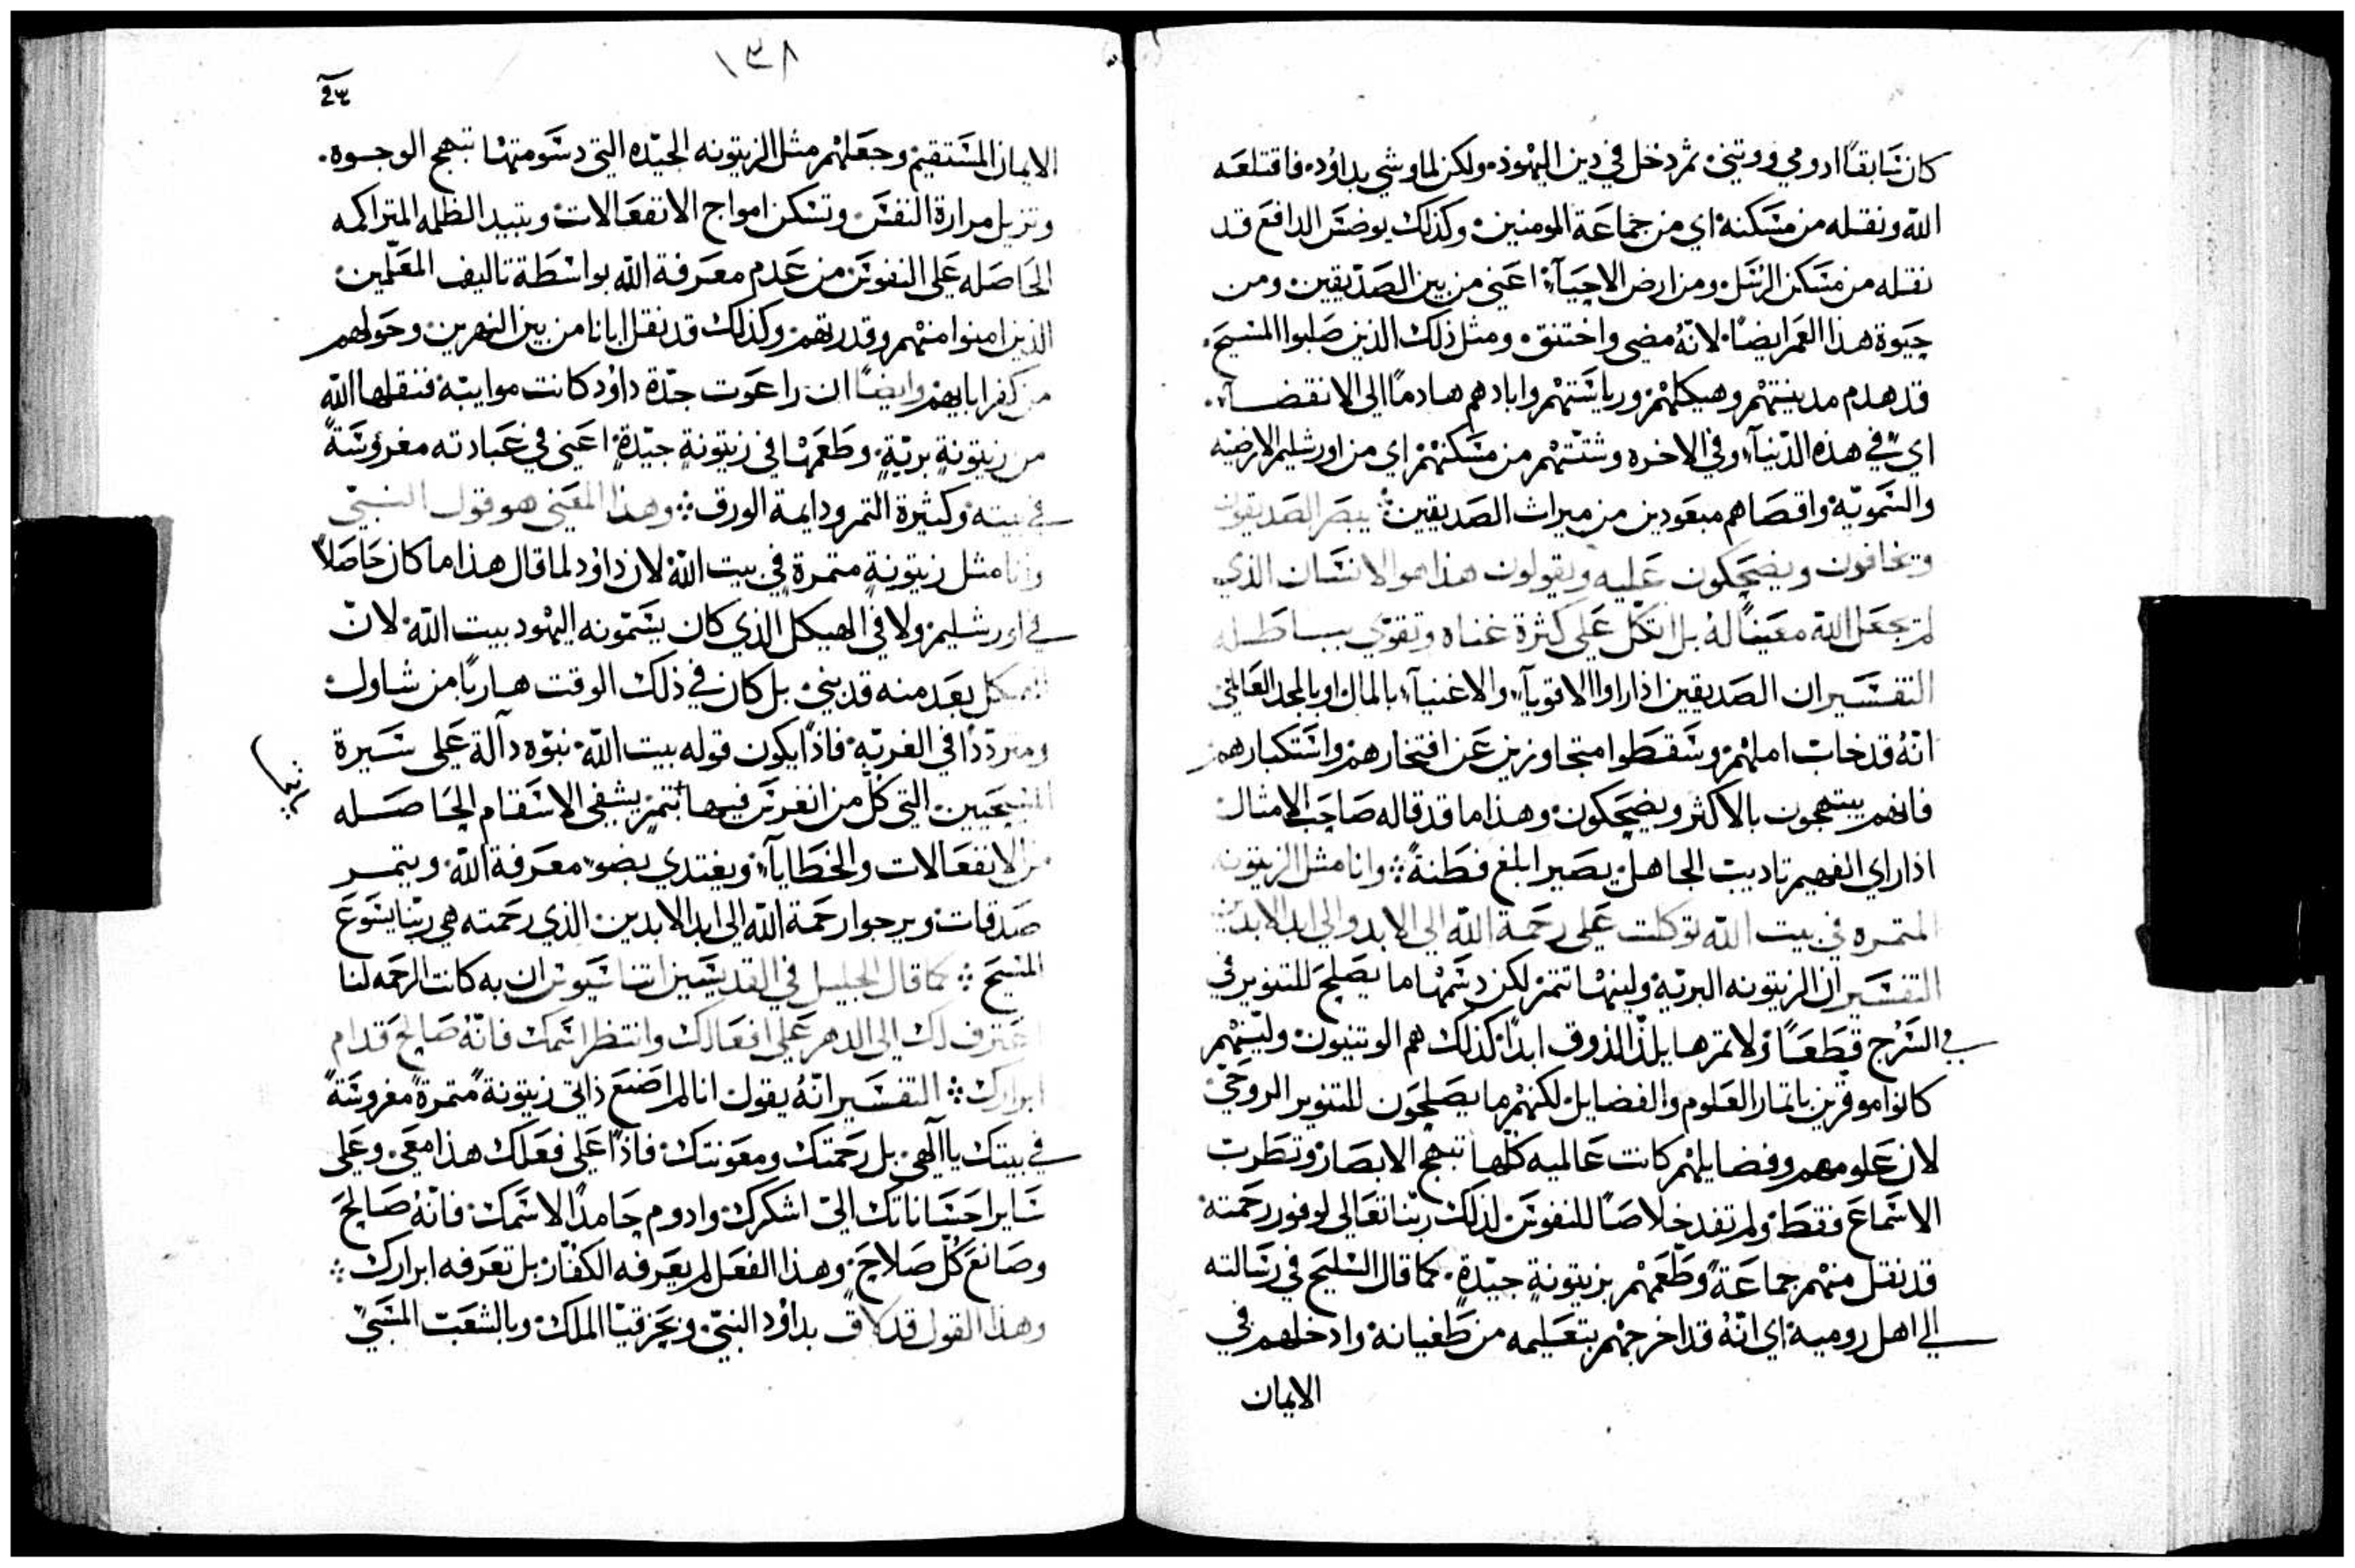 كان سَابقاً ادومي ووتني ثم دخل في دين اليهود ولكن لما وشي بداوُد فاقتلعَه
الله ونقله من مسَكنه اي من جماعَة المومنين وكذلك يوضسَ الدافع قد
نقله من مسَكن الرسَل ومن ارض الاحيآء اعَني من بين الصَدّيقين ومن
حيوة هذا العَمر ايضاً لانّهُ مضي واختنق ومثل ذلك الذين صَلبوا المسَيحَ
قد هدم مدينتهْم وهيكلهْم ورياسَتهم وابادهم هادماً الي الانقضآء
اي في هذه الدّنيآ وفي الاخره وشتّتهْم من مسَكنهْم اي من اورشليم الارضيّه
والسَمويّه واقصَاهم مبعَودين من ميراث الصَديقين يبصَر الصَديقون
ويخافون ويضحَكون عَليه ويقولون هذا هو الانسَان الذي
لم يجعَل الله معَيناً لهُ بل اتكل عَلي كثرة غناه وتقوّي بباطله
التفسَير ان الصَديقين اذا راوا الاقويآء والاغنيآء بالمال او بالمجد العَالمي
انّهُ قد خاب املهْم وسَقطَوا متجاوزين عَن افتخارهم واسَتكبارهم
فانهم يبتهجون بالاكثر ويضحَكون وهذا ما قد قاله صَاحَب الامثال
اذا راي الفهيم تاديب الجاهل يصَير ابلغ فطَنةً وانا مثل الزيتونه
المتمره في بيت الله توكلت عَلي رحَمة الله الي الابد والي ابد الابدين
التفسَير ان الزيتونه البريّه ولينهْا تتمر لكن دسَمهْا ما يصَلحَ للتنوير في
في السَرُج قطَعَاً ولا تمرها يلذّ الذوق ابداً كذلك هم الوتنيون وليّنهْم
كانوا موقرين باتمار العَلوم والفضايل لكنهْم ما يصَلحَون للتنوير الروحَيّ
لان عَلومهم وفضايلهْم كانت عَالميه كلّها تبهج الابصَار وتطَرب
الاسَماعَ فقطَ ولم تفد خلاصَاً للنفوسَ لذلك ربّنا تعَالي لوفور رحَمته
قد نقل منهْم جماعَةً وطَعّمهْم بزيتونةٍ جيّدةٍ كما قال السَليحَ في رسَالته
الي اهل روميه اي انّهُ قد اخرجهْم بتعَليمه من طَغيانه وادخلهم في
الايمان
١٣٨
الايمان المسَتقيم وجعَلهْم مثل الزيتونه الجيّده التي دسَومتهْا تبهج الوجوه
وتزيل مرارة النفسَ وتسَكن امواج الانفعَالات وتبيد الظلمه المتراكمه
الحَاصَله عَلي النفوسَ من عَدم معَرفة الله بواسَطَة تاليف المعَلّمين
الذين امنوا منهْم وقدرتهم وكذلك قد نقل ابانا من بين النهرين وحَولهم
من كفر ابايهم وايضاً ان راعَوت جدّة داوُد كانت موابيّة فنقلها الله
من زيتونةٍ بريّةٍ وطَعَمهْا في زيتونةٍ جيّدةٍ اعَني في عَبادته مغروُسَةً
في بيته وكثيرة التمر ودايمة الورق وهذا المعَني هو قول النبيّ
وانا مثل زيتونةٍ متمرةٍ في بيت الله لان داوُد لما قال هذا ما كان حَاصَلاً
في اورشليم ولا في الهيكل الذي كان يسَمّونه اليهْود بيت الله لانّ
الهيكل بعَد منه قد بني بل كان في ذلك الوقت هارباً من شاول
ومتردّداً في الغربّه فاذاً يكون قوله بيت الله نبوّه دآلة عَلي سَيرة
المسَيحَيين التي كلّ من انغرسَ فيها يتمر يشفي الاسَقام الحَاصَله
من الانفعَالات والخطَايآ ويغتدي بضوء معَرفة الله ويتمر
صَدقات ويرجوا رحَمة الله الي ابد الابدين الذي رحَمته هي ربّنا يسَوعَ
المسَيحَ كما قال الجليل في القديسَين اتناسَيوسَ ان به كانت الرحَمه لنا
اعَترف لك الي الدهر عَلي افعَالك وانتظر اسَمك فانّهُ صَالحَ قدام
ابرارك التفسَير انّهُ يقول انا لم اصَنعَ ذاتي زيتونةً متمرةً مغروسَةً
في بيتك يا الهي بل رحَمتك ومعَونتك فاذاً عَلي فعَلك هذا معَي وعَلي
سَاير احَسَاناتك اليّ اشكرك وادوم حَامداً لاسَمك فانّهُ صَالحَ
وصَانعَ كُلّ صَلاحَ وهذا الفعَل لم يعَرفه الكفّار بل تعَرفه ابرارك
وهذا القول قد لاق بداوُد النبيّ وبحَزقيّا الملك وبالشعَب المسَبيّ